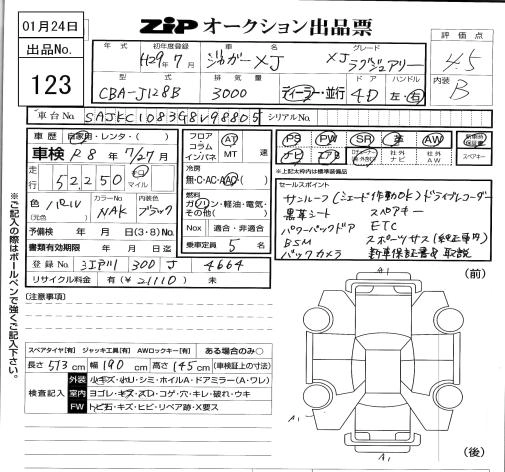 01月24日
出品No.
123
ZIP オークション出品票
評価点
4.5
内装
B
年式
初年度登録
H29年7月
車名
ジャガーXJ
グレード
XJ ラグジュアリー
型式
CBA-J128B
排気量
3000
ディーラー・並行
ドア
4D
ハンドル
左・右
車台No. SAJKC1083G8V98805 シリアルNo.
車歴 自家用・レンタ・( )
車検 R8年7/27月
走行 52,250 キロ マイル
色 パール
(元色)
カラーNo. NAK
ブラック
予備検 年 月 日(3・8)No.
書類有効期限 年 月 日迄
登録No. 300 J 4664
リサイクル料金 有(¥21110) 未
フロア コラム インパネ
AT MT 速
冷房
無・C・AC・AAC
ガ・ハン・軽油・電気・その他( )
Nox 適合・非適合
乗車定員 5 名
PS PW SR 革 AW 新車時保証書
ナビ エアB 社外ナビ 社外AW スペアキー
※上記太枠内は標準装備品
セールスポイント
サンルーフ(シェード作動OK) ドライブレコーダー
黒革シート スペアキー
パワーバックドア ETC
BSM スポーツサス(純正車高)
バックカメラ 新車保証書&取説
※ご記入の際はボールペンで強くご記入下さい。
(注意事項)
スペアタイヤ[有] ジャッキ工具[有] AWロックキー[有] ある場合のみ○
長さ513cm 幅190cm 高さ145cm (車検証上の寸法)
検査記入
外装 小キズ・小U・シミ・ホイルA・ドアミラー(A・ワレ)
室内 ヨゴレ・キズ・スレ・コゲ・穴・キレ・破れ・ウキ
FW トビ石・キズ・ヒビ・リペア跡・X要ス
(前)
A1
A1
A1
(後)